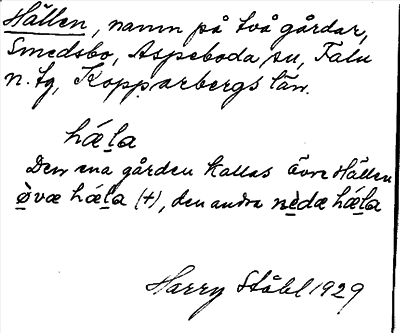 Hällen, namn på två gårdar,
Smedsbo, Aspeboda sn, Falu
n. tg, Kopparbergs län.
hǽla
Den ena gården kallas Övre Hällen
ø̀væ hǽla (+), den andra nèdæ hǽla
Harry Ståhl 1929